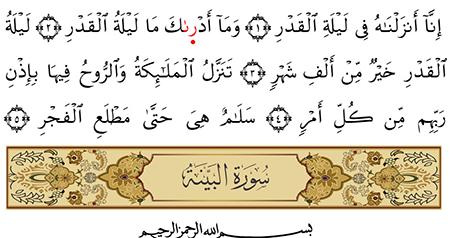 إِنَّآ أَنزَلْنَـٰهُ فِى لَيْلَةِ ٱلْقَدْرِ ۝١ وَمَآ أَدْرَىٰكَ مَا لَيْلَةُ ٱلْقَدْرِ ۝٢ لَيْلَةُ
ٱلْقَدْرِ خَيْرٌ مِّنْ أَلْفِ شَهْرٍ ۝٣ تَنَزَّلُ ٱلْمَلَـٰٓئِكَةُ وَٱلرُّوحُ فِيهَا بِإِذْنِ
رَبِّهِم مِّن كُلِّ أَمْرٍ ۝٤ سَلَـٰمٌ هِىَ حَتَّىٰ مَطْلَعِ ٱلْفَجْرِ ۝٥
سُورَةُ البَيِّنَةِ
بسم الله الرحمن الرحيم